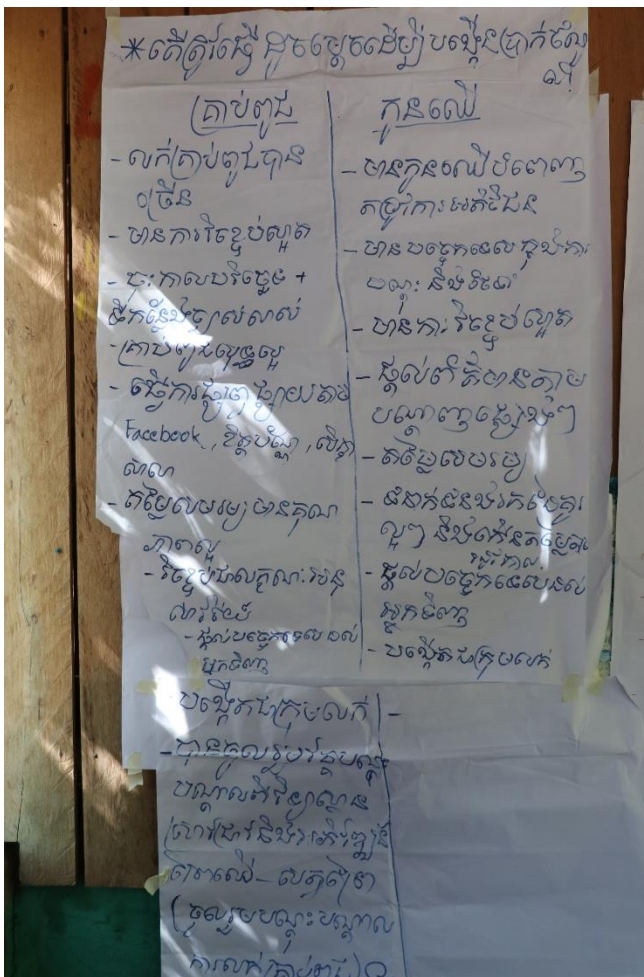 *តើត្រូវធ្វើដូចម្ដេចដើម្បីបង្កើនប្រាក់ចំណូល
គ្រាប់ពូជ
- លក់គ្រាប់ពូជបាន
ច្រើន
- មានការវិចខ្ចប់ល្អត
- ចុះកាលបរិច្ឆេទ +
ទីកន្លែងច្បាស់លាស់
- គ្រាប់ពូជសុទ្ធល្អ
- ធ្វើការផ្សព្វផ្សាយតាម
Facebook, ខិត្តប័ណ្ណ, សិក្ខា
សាលា
- តម្លៃសមរម្យ មានគុណ
ភាពល្អ
- វិចខ្ចប់ជាលក្ខណៈ
- ផ្ដល់បច្ចេកទេសដល់
អ្នកទិញ
បង្កើតជាក្រុមលក់
- បានចូលរួមវគ្គបណ្ដុះ
បណ្ដាលពីវិទ្យាស្ថាន
ស្រាវជ្រាវនិងអភិវឌ្ឍន៍
ព្រៃឈើ -
(ចូលរួមបណ្ដុះបណ្ដាល
ការលក់គ្រាប់ពូជ)
កូនឈើ
- មានកូនឈើបំពេញ
តម្រូវការអតិថិជន
- មានបច្ចេកទេសក្នុងការ
បណ្ដុះ និងថែទាំ
- មានការវិចខ្ចប់ល្អត
- ផ្ដល់ព័ត៌មានតាម
បណ្ដាញផ្សេងៗ
- តម្លៃសមរម្យ
- ទំនាក់ទំនងរកដៃគូរ
ល្អៗ និងកំនតម្លៃតាម
រដូវកាល
- ផ្ដល់បច្ចេកទេសដល់
អ្នកទិញ
- បង្កើតជាក្រុមលក់
-